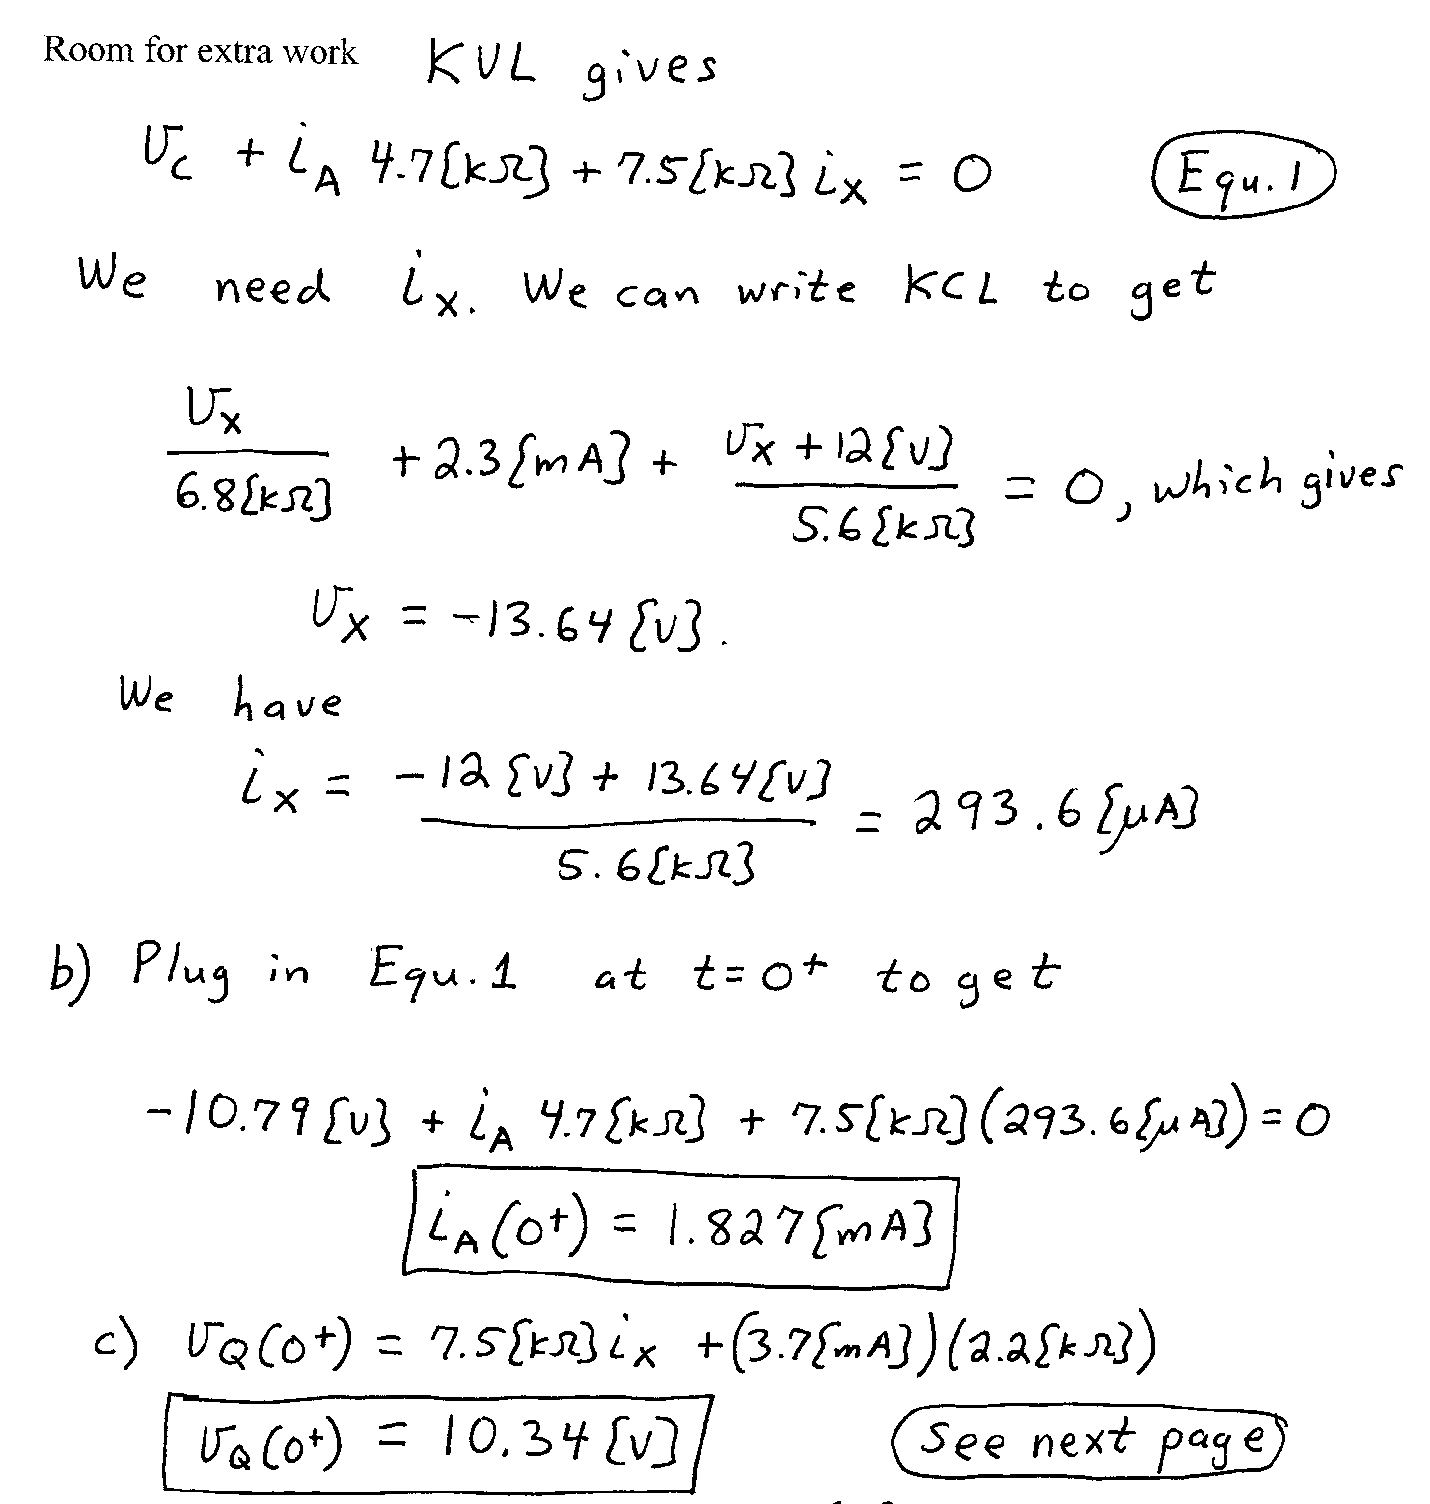 Room for extra work KVL gives
v_C + i_A 4.7[kΩ] + 7.5[kΩ] i_X = 0 Equ. 1
We need i_X. We can write KCL to get
v_X / 6.8[kΩ] + 2.3[mA] + (v_X + 12[V]) / 5.6[kΩ] = 0, which gives
v_X = -13.64[V].
We have
i_X = (-12[V] + 13.64[V]) / 5.6[kΩ] = 293.6[μA]
b) Plug in Equ. 1 at t=0+ to get
-10.79[V] + i_A 4.7[kΩ] + 7.5[kΩ](293.6[μA]) = 0
i_A(0+) = 1.827[mA]
c) v_Q(0+) = 7.5[kΩ] i_X + (3.7[mA])(2.2[kΩ])
v_Q(0+) = 10.34[V] See next page